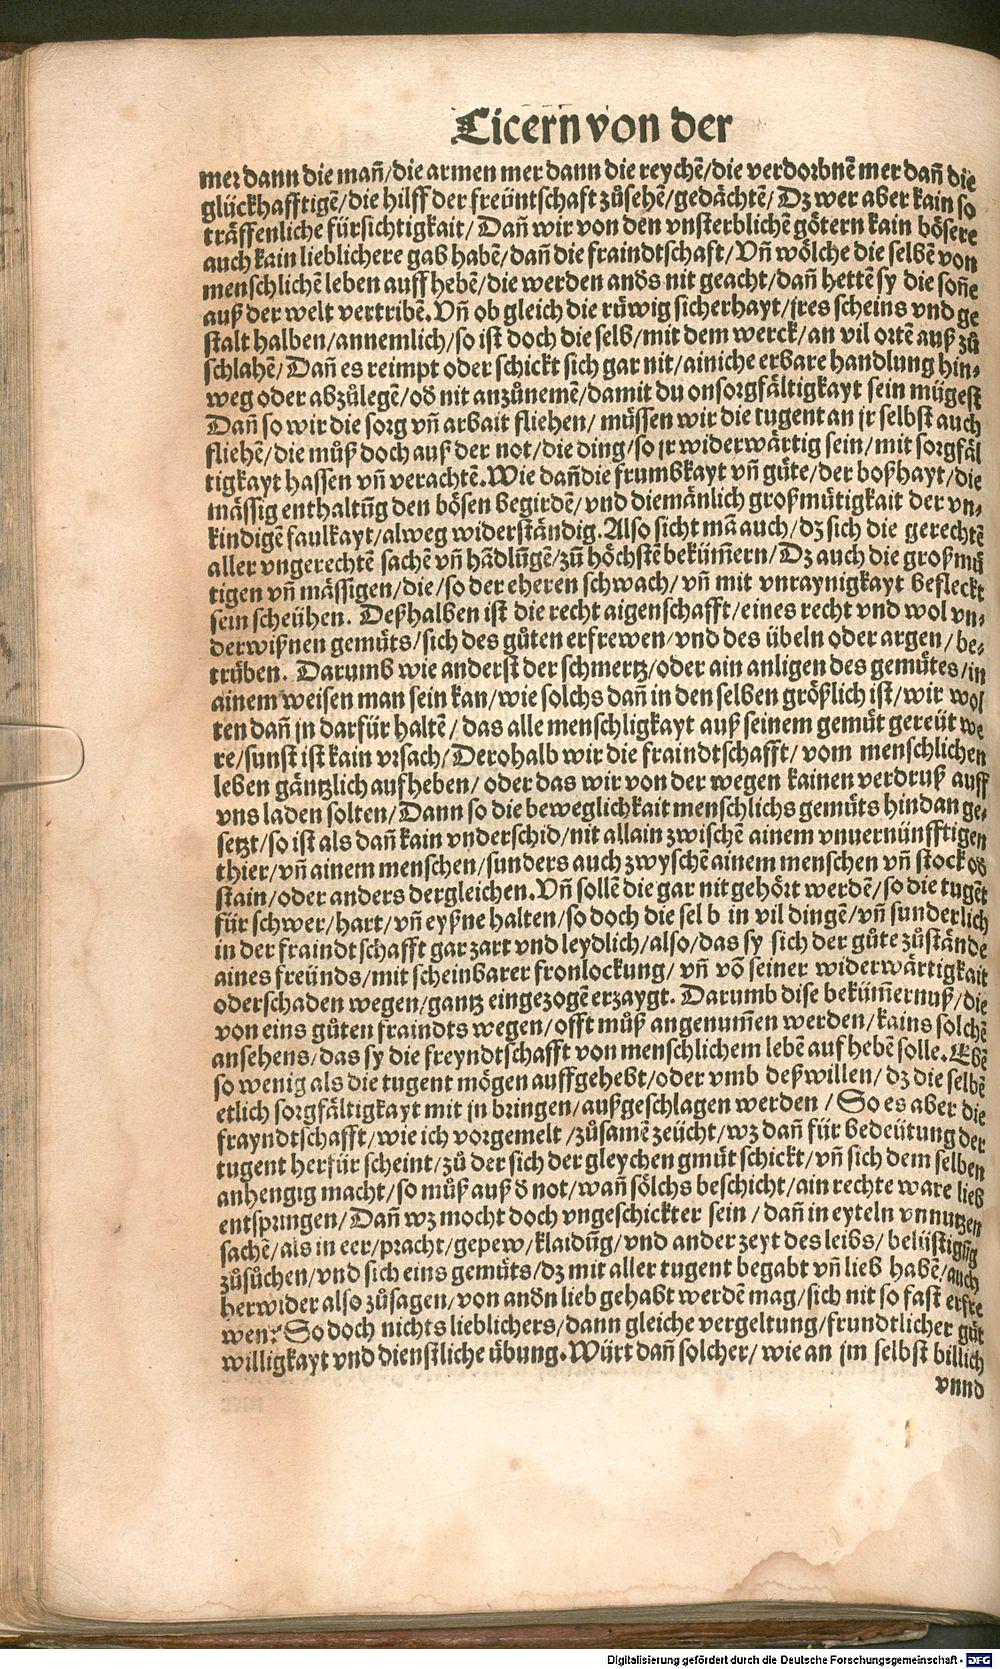 Cicern von der
mer dann die man̄/die armen mer dann die reychē/die verdorbnē mer dan̄ die
glückhafftigē/die hilff der freüntschaft zůsehē/gedächtē/Dz wer aber kain so
träffenliche fürsichtigkait/Dan̄ wir von den vnsterblichē götern kain bösere
auch kain lieblichere gab habē/dan̄ die fraindtschaft/Vn̄ wölche die selbē von
menschlichē leben auff hebē/die werden and̄s nit geacht/dan̄ hettē sy die son̄e
auß der welt vertribē. Vn̄ ob gleich die rüwig sicherhayt/jres scheins vnd ge
stalt halben/annemlich/so ist doch die selb/mit dem werck/an vil ortē auß zů
schlahē/Dan̄ es reimpt oder schickt sich gar nit/ainiche erbare handlung hin⸗
weg oder abzůlegē/od̄ nit anzůnemē/damit du onsorgfältigkayt sein mügest
Dan̄ so wir die sorg vn̄ arbait fliehen/ müssen wir die tugent an jr selbst auch
fliehē/die můß doch auß der not/die ding/so jr widerwärtig sein/mit sorgfäl
tigkayt hassen vn̄ verachtē. Wie dan̄ die frumbkayt vn̄ güte/der boßhayt/die
mässig enthaltūg den bösen begirdē/vnd die mänlich großmütigkait der vn⸗
kindigē faulkayt/alweg widerständig. Also sicht mā auch/dz sich die gerechtē
aller vngerechtē sachē vn̄ hādlūgē/zū höchstē beküm̄ern/Dz auch die großmü
tigen vn̄ mässigen/die/so der eheren schwach/vn̄ mit vnraynigkayt befleckt
sein scheühen. Deßhalben ist die recht aigenschafft/eines recht vnd wol vn⸗
derwißnen gemüts/sich des gůten erfrewen/vnd des übeln oder argen/be⸗
trüben. Darumb wie anderst der schmertz/oder ain anligen des gemütes/in
ainem weisen man sein kan/wie solchs dan̄ in den selben größlich ist/wir wol
ten dan̄ jn darfür haltē/das alle menschligkayt auß seinem gemüt gereüt we
re/sunst ist kain vrsach/Derohalb wir die fraindtschafft/vom menschlichen
leben gäntzlich aufheben/oder das wir von der wegen kainen verdruß auff
vns laden solten/Dann so die beweglichkait menschlichs gemüts hindan ge⸗
setzt/so ist als dan̄ kain vnderschid/nit allain zwischē ainem vnuernünfftigen
thier/vn̄ ainem menschen/sunders auch zwyschē ainem menschen vn̄ stock od̄
stain/oder anders dergleichen. Vn̄ sollē die gar nit gehört werdē/so die tugēt
für schwer/hart/vn̄ eyßne halten/so doch die sel b in vil dingē/vn̄ sunderlich
in der fraindtschafft gar zart vnd leydlich/also/das sy sich der gůte zůstände
aines freünds/mit scheinbarer fronlockung/vn̄ vō seiner widerwärtigkait
oder schaden wegen/gantz eingezogē erzaygt. Darumb dise beküm̄ernuß/die
von eins gůten fraindts wegen/offt můß angenum̄en werden/kains solchē
ansehens/das sy die freyndtschafft von menschlichem lebē auf hebē solle. Ebē
so wenig als die tugent mögen auffgehebt/oder vmb deßwillen/dz die selbē
etlich sorgfältigkayt mit jn bringen/außgeschlagen werden/So es aber die
frayndtschafft/wie ich vorgemelt/zůsamē zeücht/wz dan̄ für bedeütung der
tugent herfür scheint/zů der sich der gleychen gmüt schickt/vn̄ sich dem selben
anhengig macht/so můß auß d̄ not/wan̄ sölchs beschicht/ain rechte ware lieb
entspringen/Dan̄ wz mocht doch vngeschickter sein/dan̄ in eyteln vnnutzen
sachē/als in eer/pracht/gepew/klaidūg/vnd ander zeyt des leibs/belüstigūg
zůsůchen/vnd sich eins gemüts/dz mit aller tugent begabt vn̄ lieb habē/auch
herwider also zůsagen/von and̄n lieb gehabt werdē mag/sich nit so fast erfre
wen? So doch nichts lieblichers/dann gleiche vergeltung/frundtlicher gůt
willigkayt vnd dienstliche übung. Würt dan̄ solcher/wie an jm selbst billich
vnnd
Digitalisierung gefördert durch die Deutsche Forschungsgemeinschaft - DFG